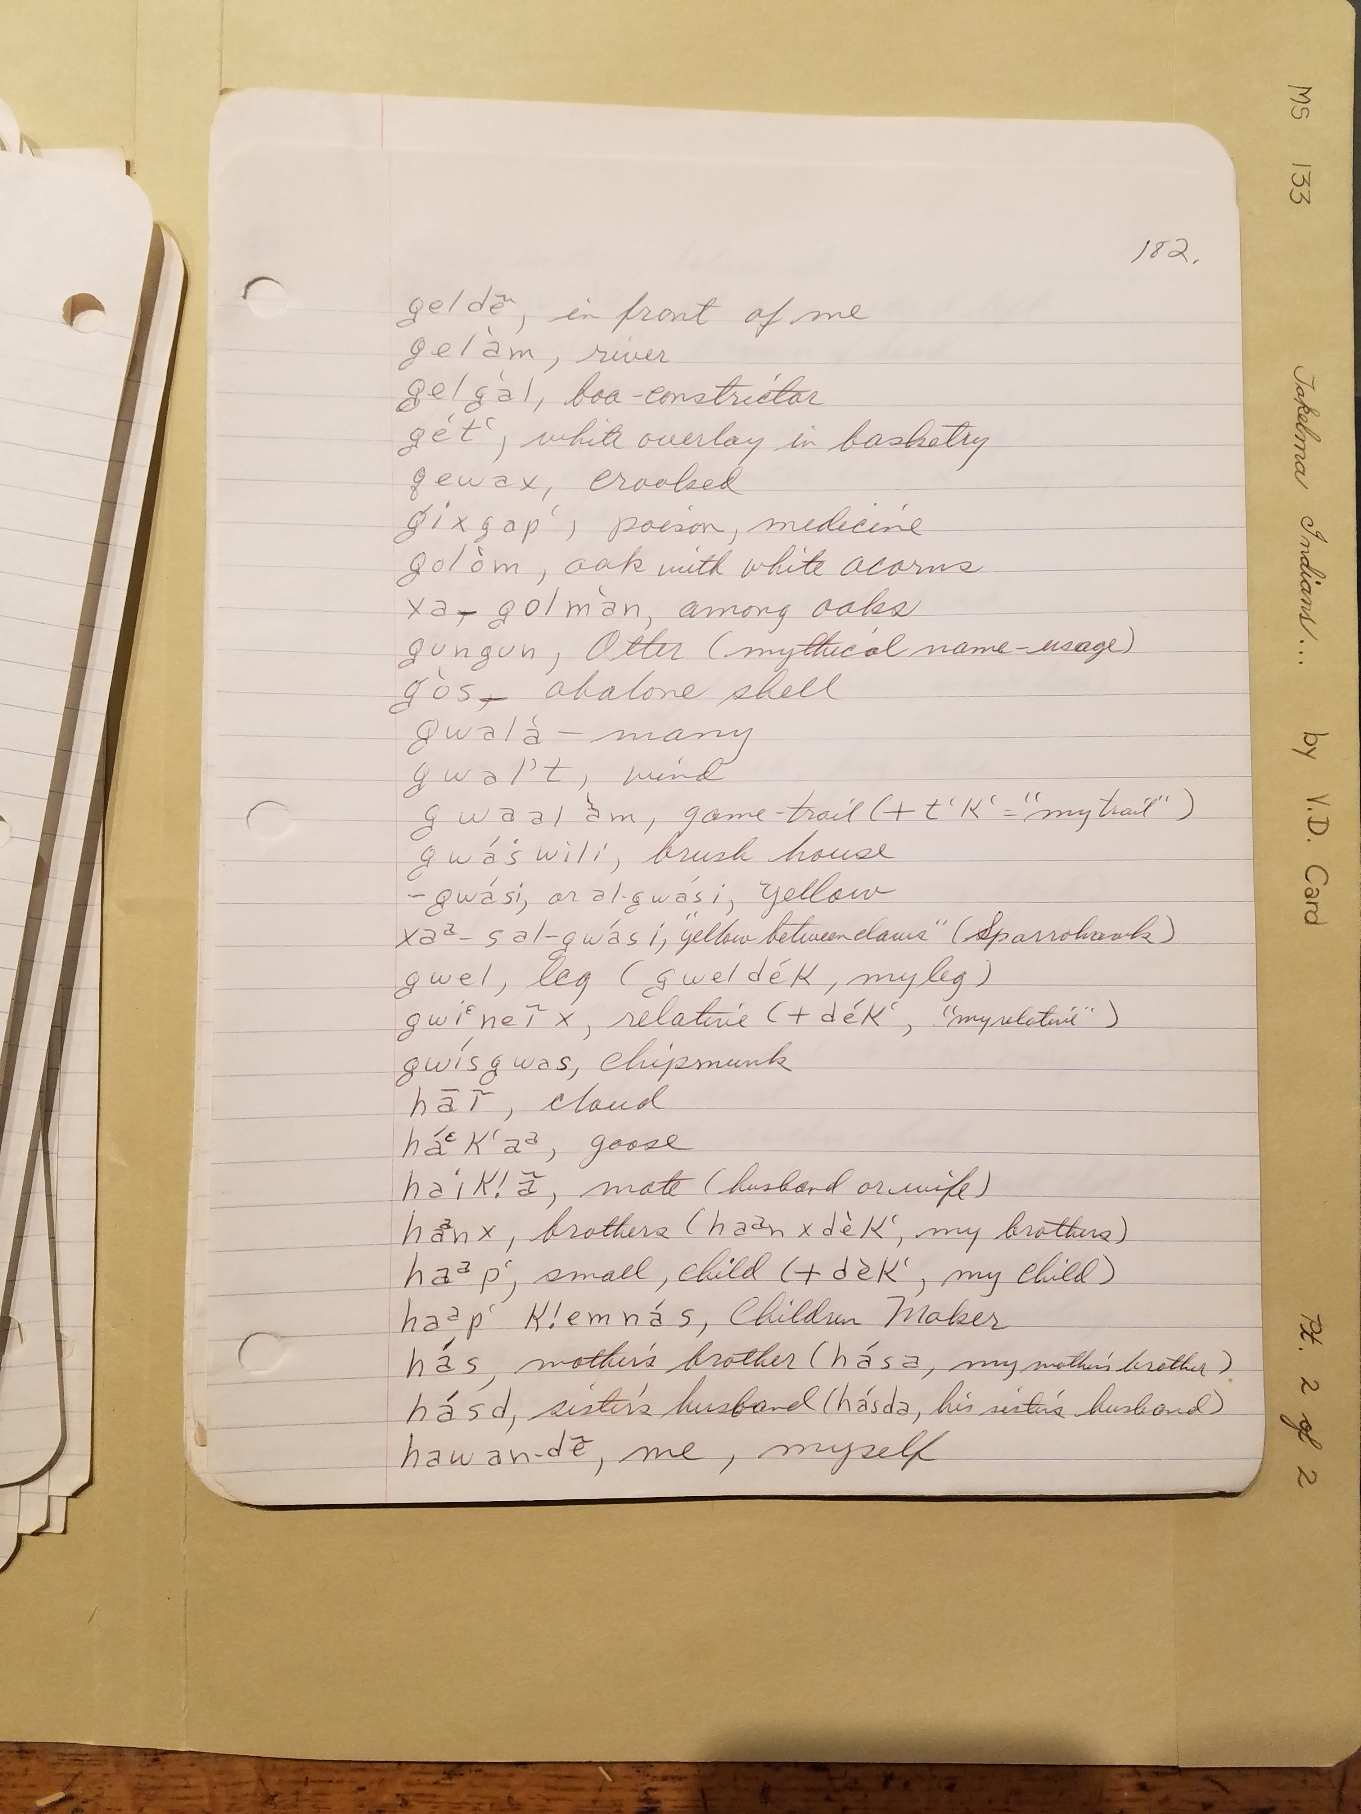 182.
geldẽ, in front of me
gelàm, river
gelgàl, boa-constrictor
gétʻ, white overlay in basketry
gewax, crooked
gíxgapʻ, poison, medicine
golòm, oak with white acorns
xa-, golmàn, among oaks
gungun, Otter (mythical name-usage)
gòs, abalone shell
gwalà – many
gwal't, wind
gwaalàm, game-trail (+ tʻkʻ = "my trail")
gwáswili, brush house
-gwási, or al-gwási, yellow
xaᵃ-sal-gwási, "yellow between claws" (Sparrohawk)
gwel, leg (gweldék, my leg)
gwíᵋneĩx, relative (+ dékʻ, "my relative")
gwísgwas, chipmunk
hāĩ, cloud
háᵋkʻaᵃ, goose
haik!ã, mate (husband or wife)
haᵃnx, brothers (haᵃnxdèkʻ, my brothers)
haᵃpʻ, small, child (+ dèkʻ, my child)
haᵃpʻ k!emnás, Children Maker
hás, mother's brother (hása, my mother's brother)
hásd, sister's husband (hásda, his sister's husband)
hawan-dẽ, me, myself
MS 133 Takelma Indians... by V.D. Card Pt. 2 of 2